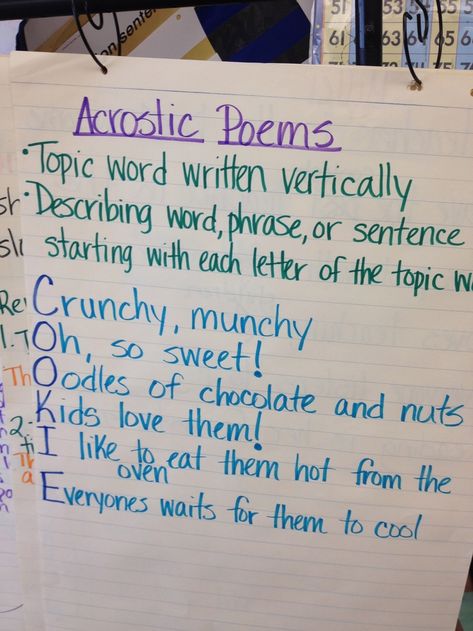 on senten
51 53 55
61 63 64 65 6
73 75 76
Acrostic Poems
• Topic word written vertically
• Describing word, phrase, or sentence
starting with each letter of the topic w
Crunchy, munchy
Oh, so sweet!
Oodles of chocolate and nuts
Kids love them!
I like to eat them hot from the
oven
Everyones waits for them to cool
sh
slu
Re
1. T
Th
2.
Th
a